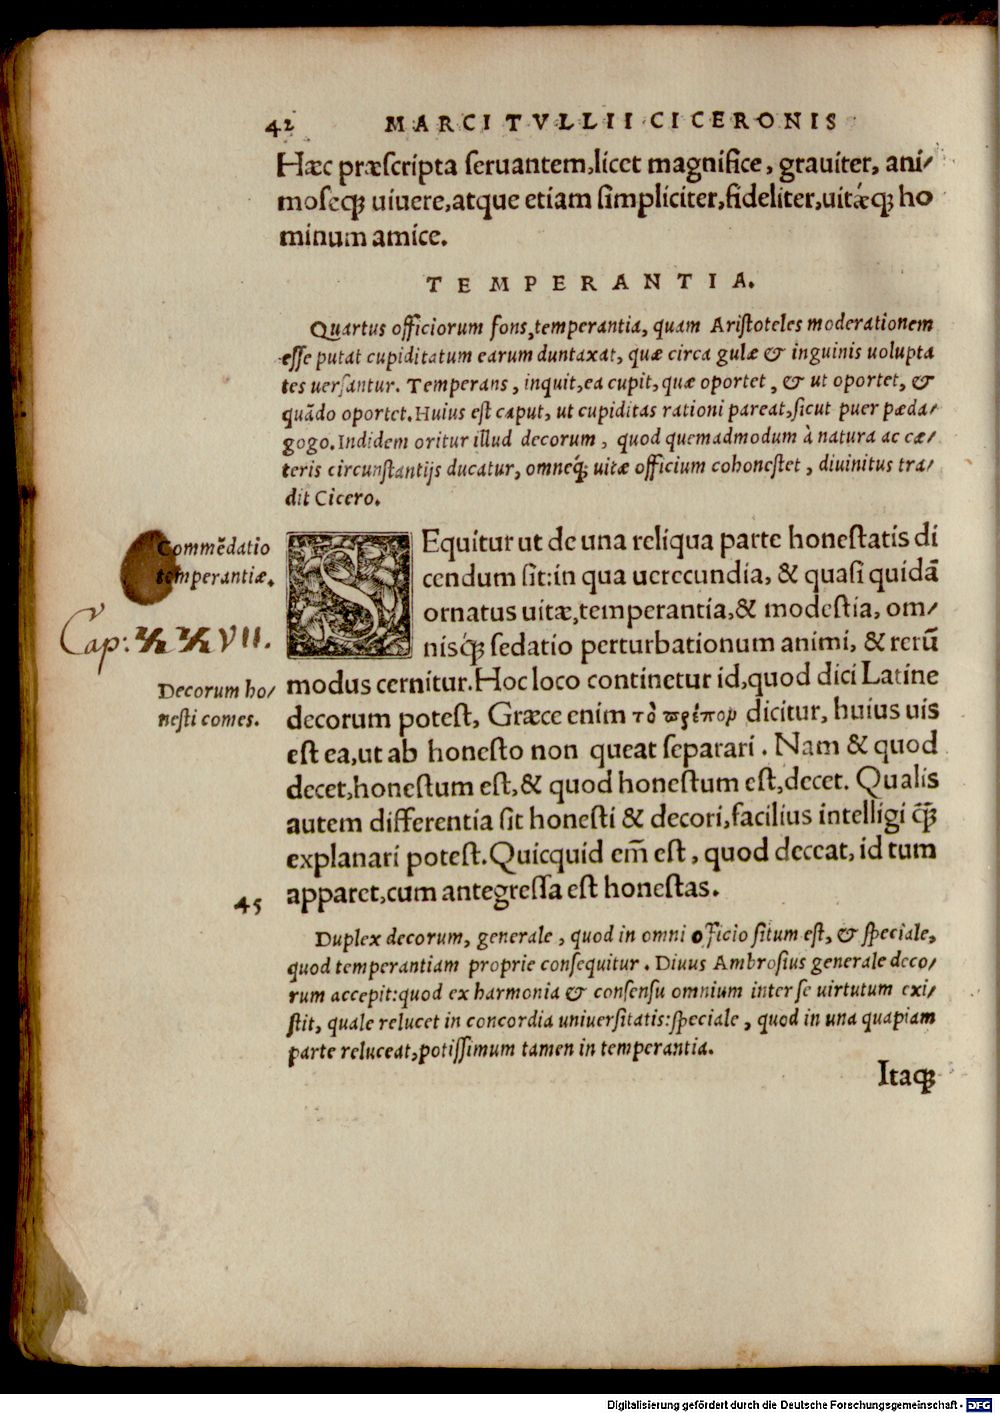 42 MARCI TVLLII CICERONIS
Hæc præscripta seruantem, licet magnifice, grauiter, ani/
moseq́ꝫ uiuere, atque etiam simpliciter, fideliter, uitǽqꝫ ho
minum amice.
TEMPERANTIA.
Quartus officiorum fons, temperantia, quam Aristoteles moderationem
esse putat cupiditatum earum duntaxat, quæ circa gulæ & inguinis uolupta
tes uersantur. Temperans, inquit, ea cupit, quæ oportet, & ut oportet, &
quãdo oportet. Huius est caput, ut cupiditas rationi pareat, sicut puer pæda/
gogo. Indidem oritur illud decorum, quod quemadmodum à natura ac cæ/
teris circunstantijs ducatur, omneq́ꝫ uitæ officium cohonestet, diuinitus tra/
dit Cicero.
Commẽdatio
temperantiæ.
SEquitur ut de una reliqua parte honestatis di
cendum sit: in qua uerecundia, & quasi quidã
ornatus uitæ, temperantia, & modestia, om/
nisq́ꝫ sedatio perturbationum animi, & rerũ
Cap: VII.
modus cernitur. Hoc loco continetur id, quod dici Latine
decorum potest, Græce enim τὸ πρέπον dicitur, huius uis
Decorum ho/
nesti comes.
est ea, ut ab honesto non queat separari. Nam & quod
decet, honestum est, & quod honestum est, decet. Qualis
autem differentia sit honesti & decori, facilius intelligi q̃ꝫ
explanari potest. Quicquid em̃ est, quod deceat, id tum
apparet, cum antegressa est honestas.
45
Duplex decorum, generale, quod in omni officio situm est, & speciale,
quod temperantiam proprie consequitur. Diuus Ambrosius generale deco/
rum accepit: quod ex harmonia & consensu omnium inter se uirtutum exi/
stit, quale relucet in concordia uniuersitatis: speciale, quod in una quapiam
parte reluceat, potissimum tamen in temperantia.
Itaqꝫ
Digitalisierung gefördert durch die Deutsche Forschungsgemeinschaft - DFG